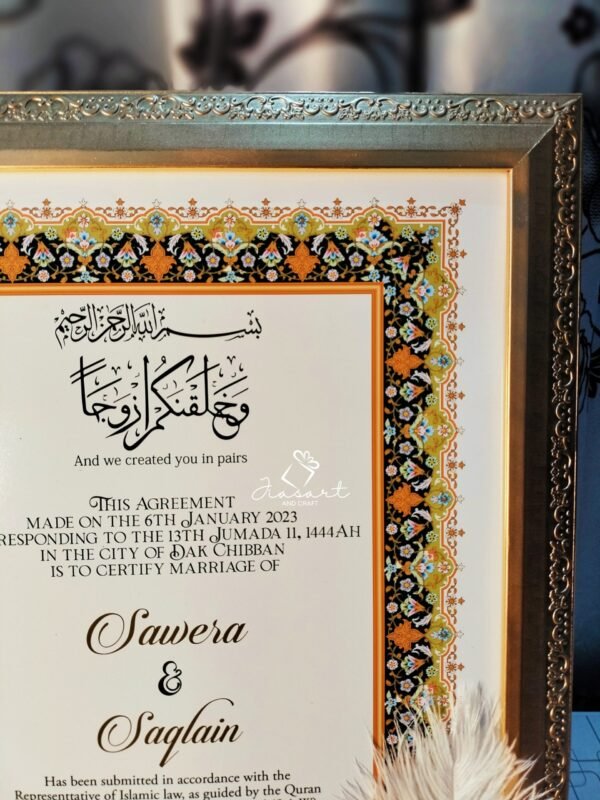 بسم الله الرحمن الرحيم
وخلقنكم ازوجا
And we created you in pairs
Jasart
AND CRAFT
This Agreement
made on the 6th January 2023
responding to the 13th Jumada 11, 1444Ah
in the city of Dak Chibban
is to certify marriage of
Sawera
&
Saqlain
Has been submitted in accordance with the
Representtative of Islamic law, as guided by the Quran